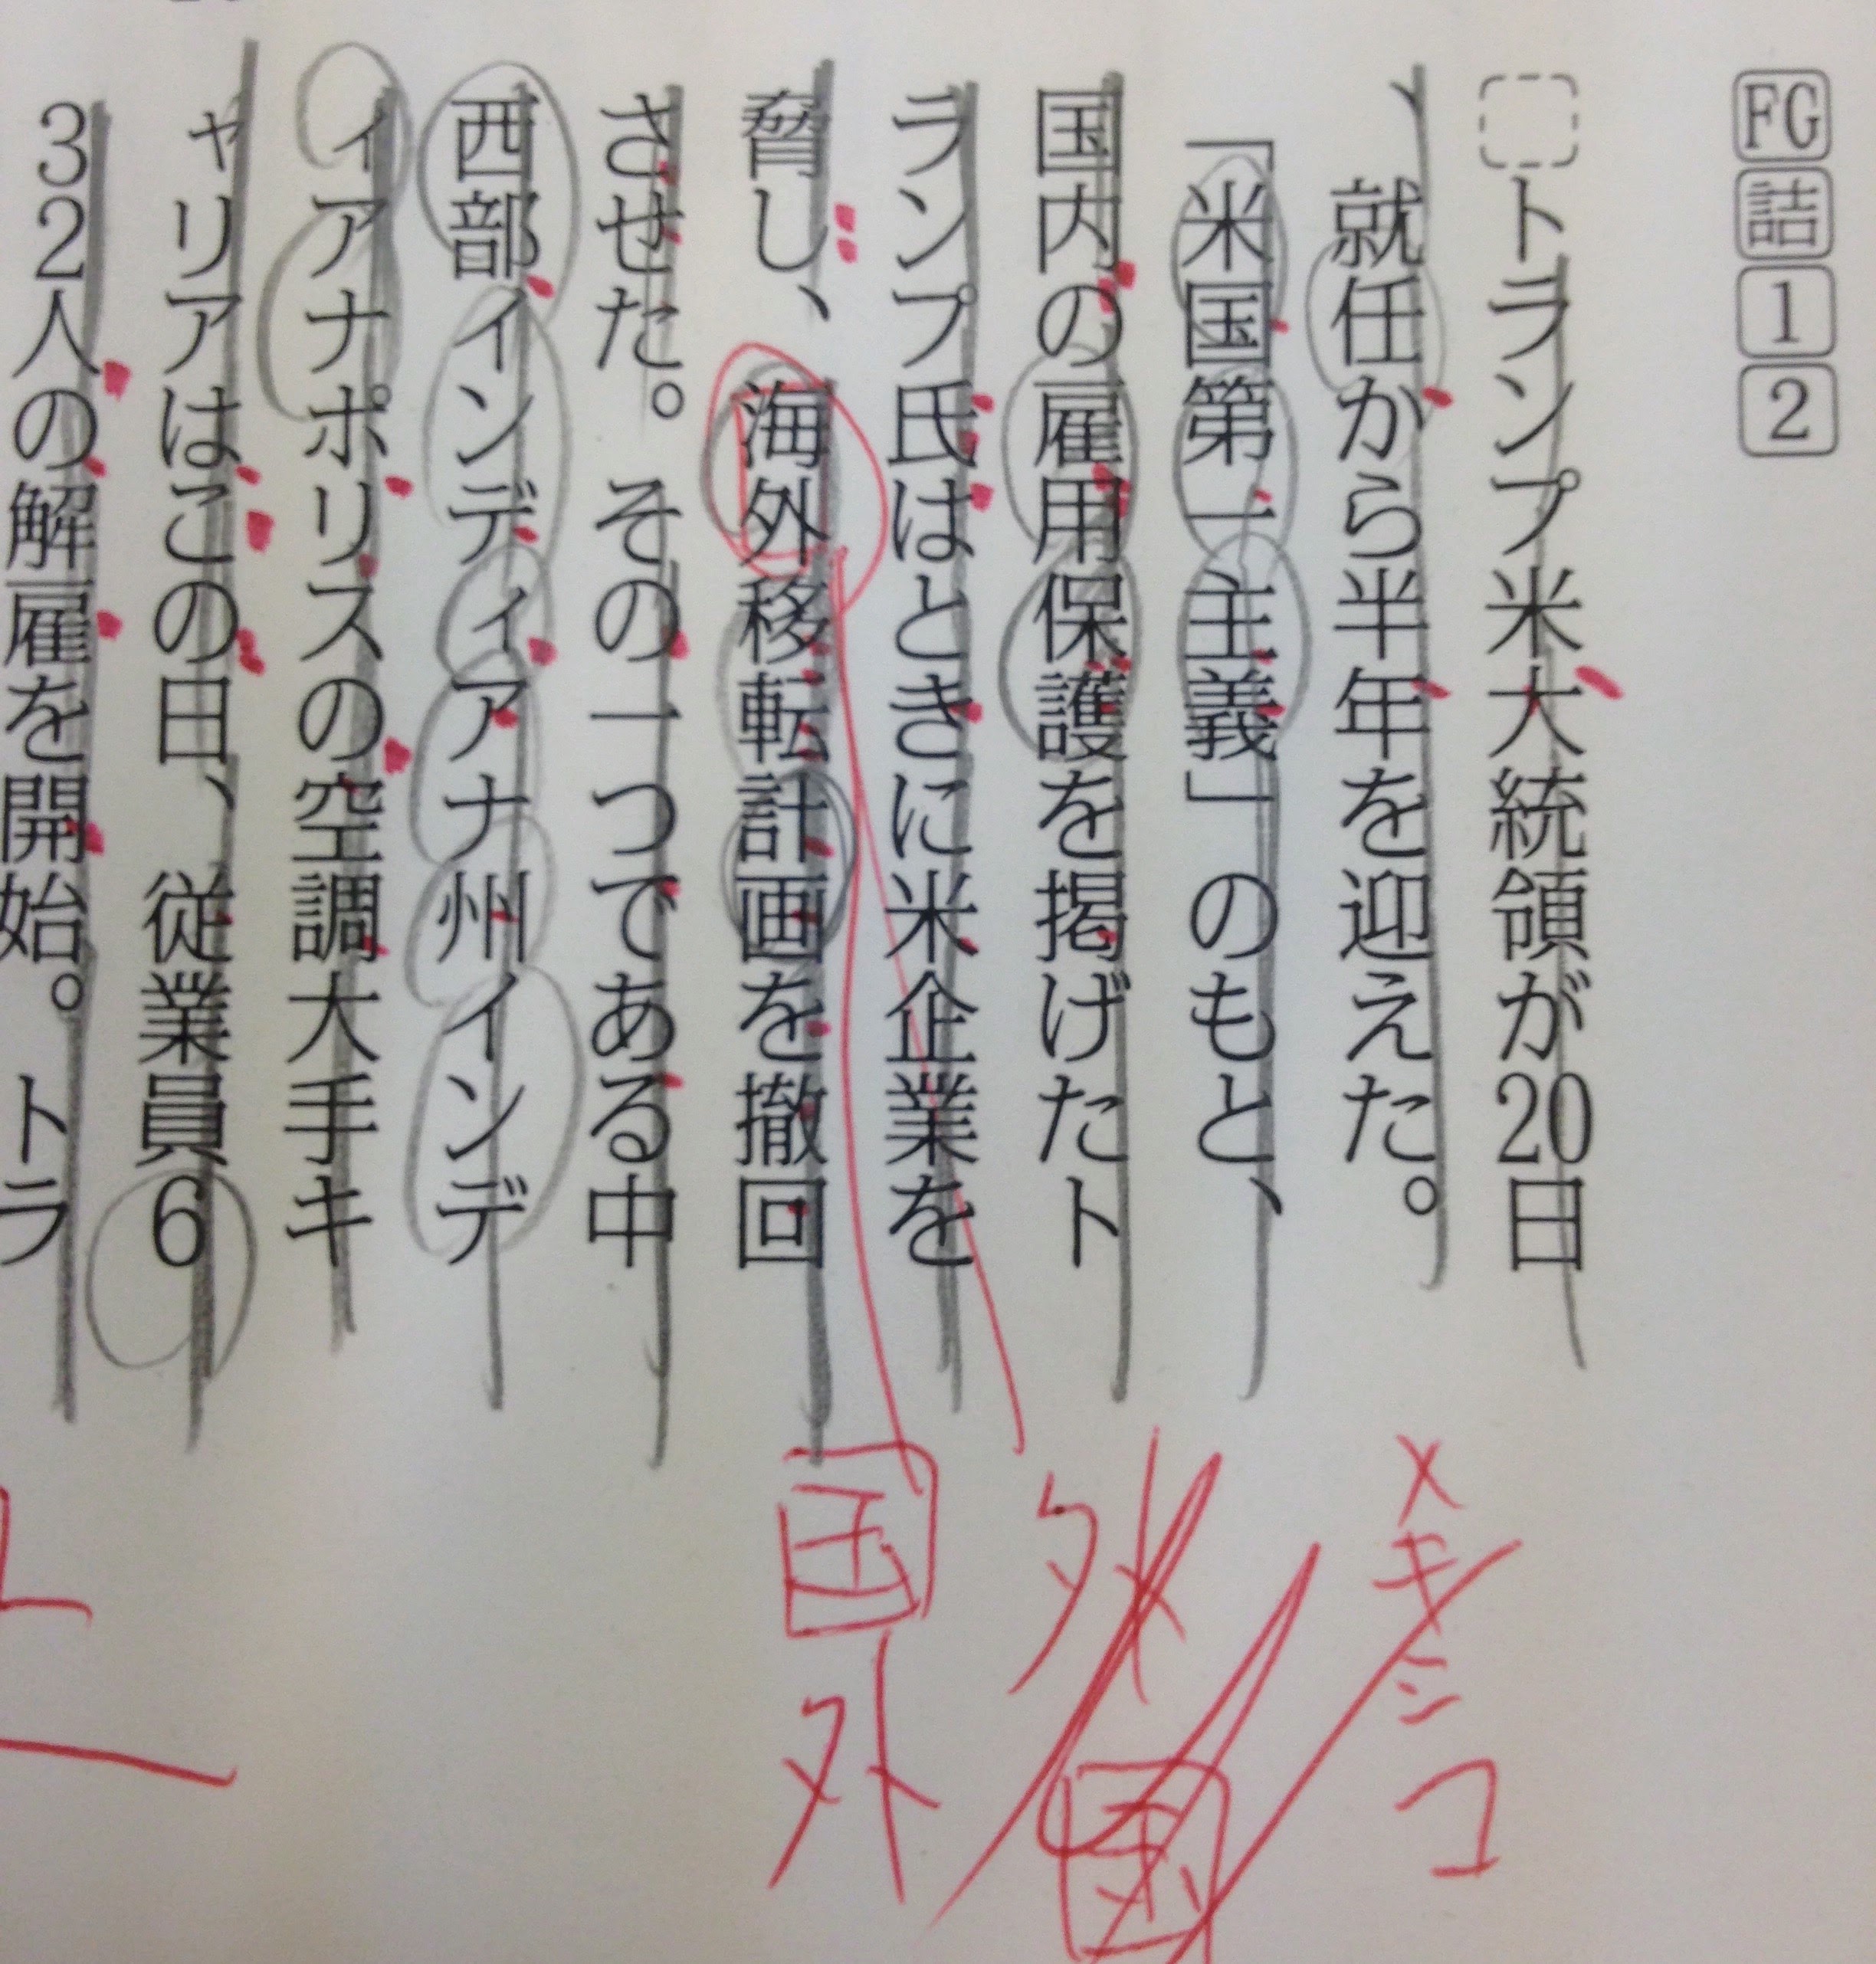 FG詰12
トランプ米大統領が20日
、就任から半年を迎えた。
「米国第一主義」のもと、
国内の雇用保護を掲げたト
ランプ氏はときに米企業を
脅し、海外移転計画を撤回
させた。その一つである中
西部インディアナ州インデ
ィアナポリスの空調大手キ
ャリアはこの日、従業員6
32人の解雇を開始。トラ
メキシコ
外国
国外